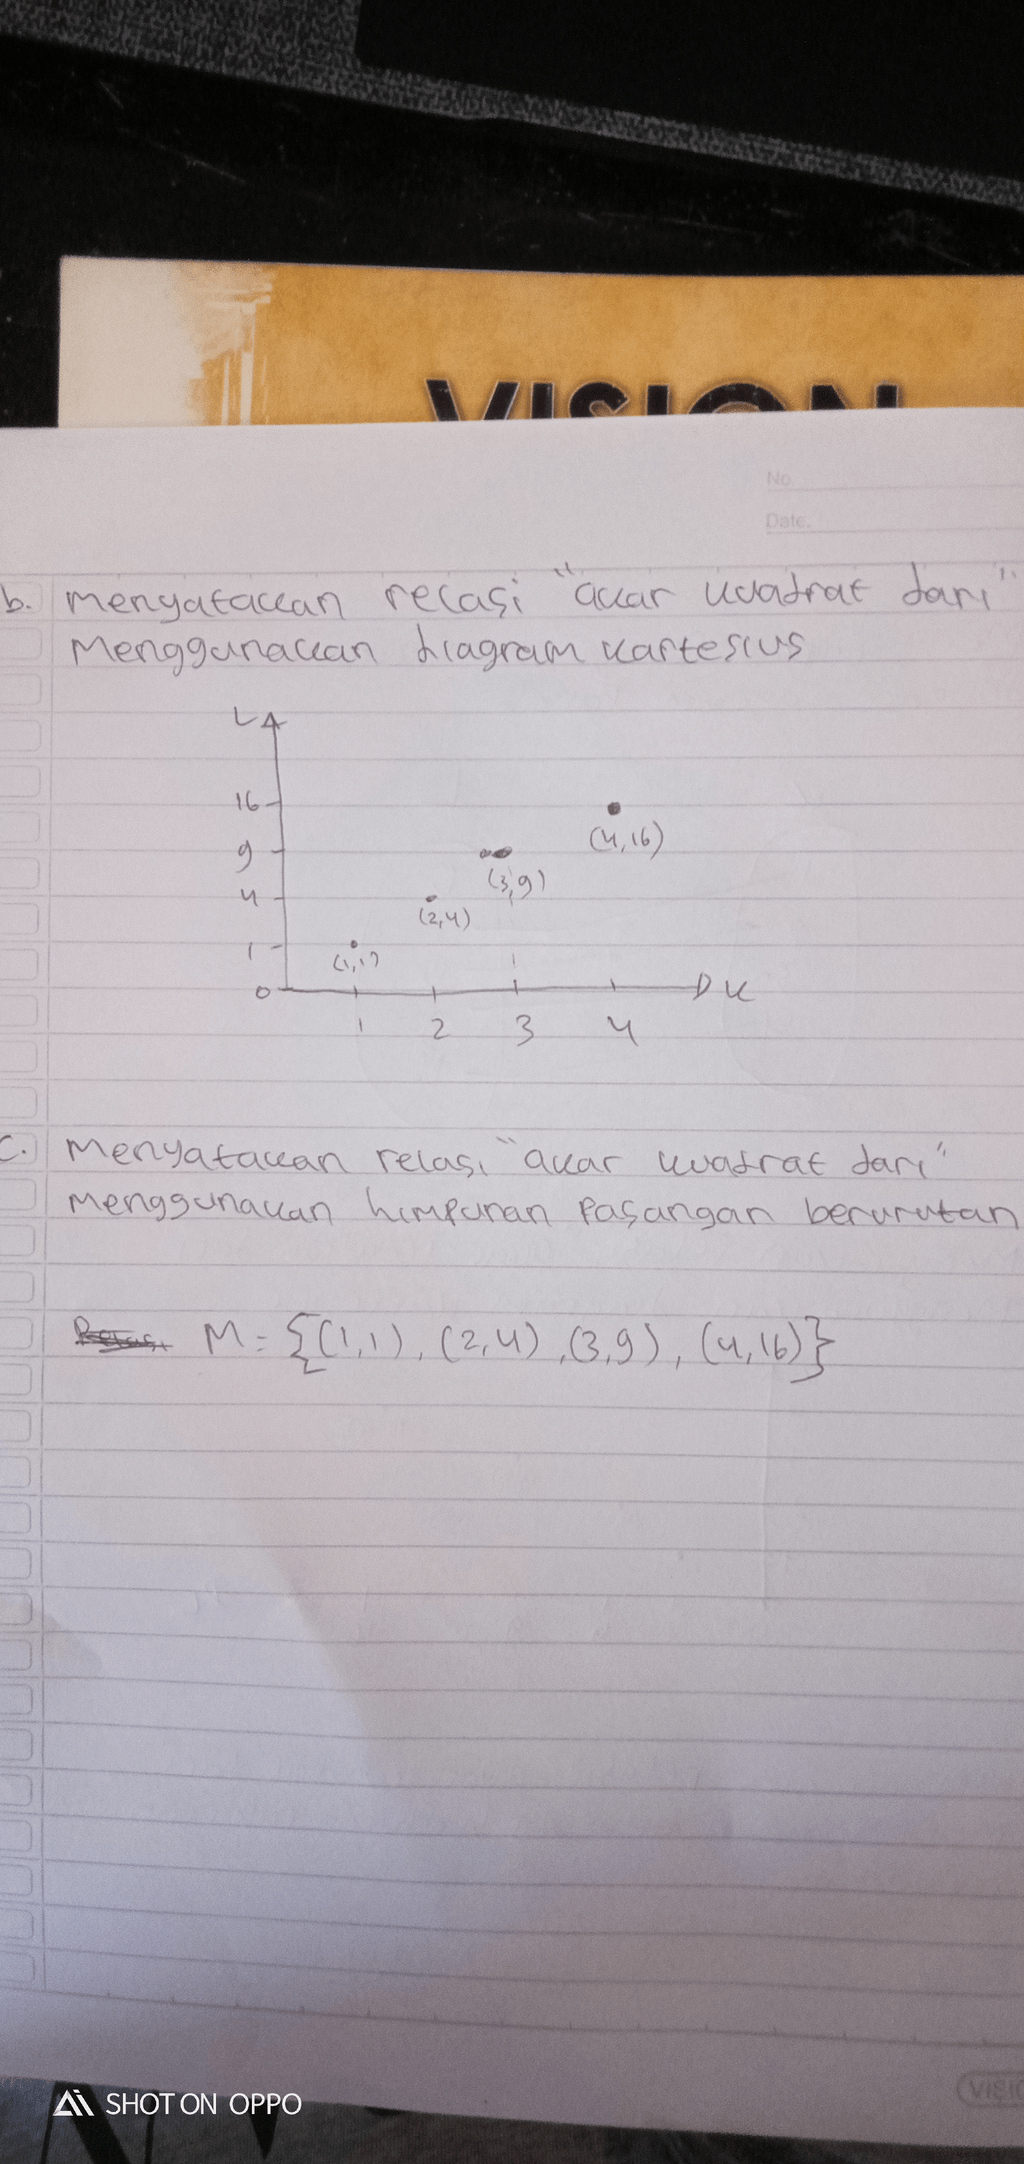 VISION
No.
Date.
b. menyatakan relasi "akar kuadrat dari"
Menggunakan diagram kartesius
L
16
9
4
1
0
(4,16)
(3,9)
(2,4)
(1,1)
K
1 2 3 4
c. Menyatakan relasi "akar kuadrat dari"
menggunakan himpunan pasangan berurutan
M = {(1,1), (2,4), (3,9), (4,16)}
SHOT ON OPPO